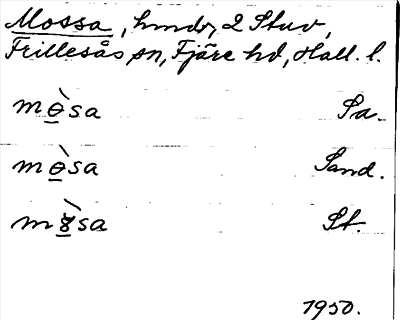 Mossa, hmdr, 2 Stuv,
Frillesås sn, Fjäre hd, Hall. l.
mɵ̀sa Sa.
mɵ̀sa Sand.
St.
1950.